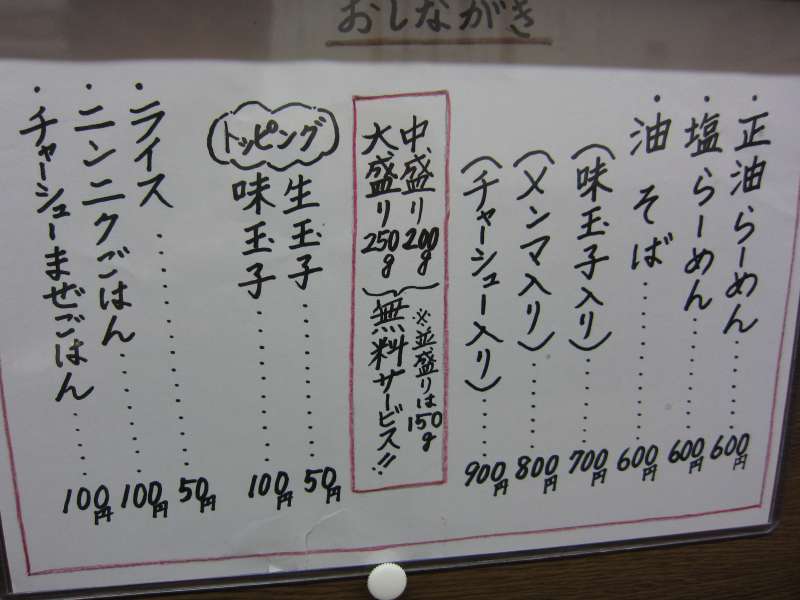 おしながき
・正油らーめん……600円
・塩らーめん……600円
・油そば……600円
(味玉子入り)……700円
(メンマ入り)……800円
(チャーシュー入り)……900円
中盛り200g
大盛り250g
※並盛りは150g
無料サービス!!
トッピング
生玉子……50円
味玉子……100円
・ライス……50円
・ニンニクごはん……100円
・チャーシューまぜごはん……100円